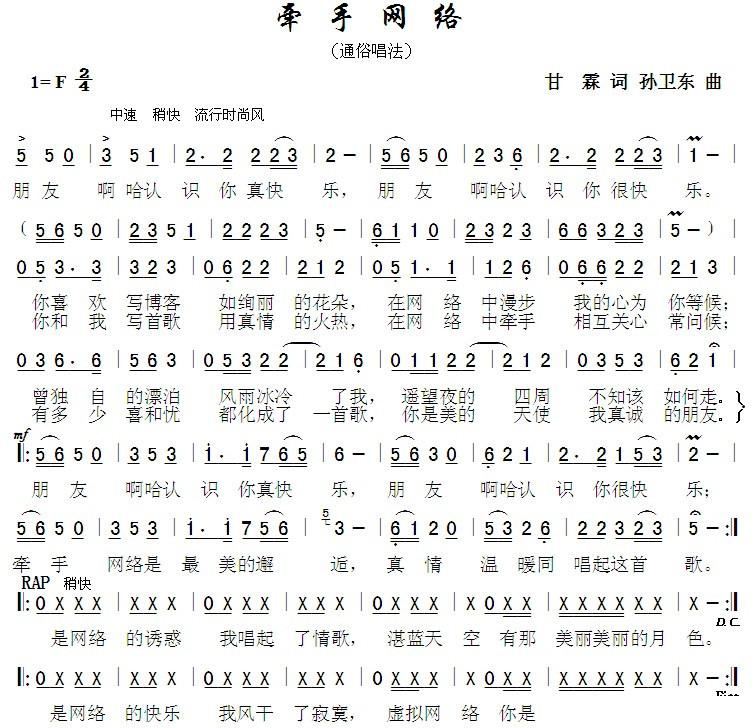 牵手网络
（通俗唱法）
1=F 2/4 甘霖 词 孙卫东 曲
中速 稍快 流行时尚风
5 5 0 | 3 5 1 | 2· 2 2 2 3 | 2 – | 5 6 5 0 | 2 3 6 | 2· 2 2 2 3 | 1 – |
朋友 啊哈认识你真快乐，朋友 啊哈认识你很快乐。
（5 6 5 0 | 2 3 5 1 | 2 2 2 3 | 5 – | 6 1 1 0 | 2 3 2 3 | 6 2 2 3 | 5 –）|
0 5 3· 3 | 3 2 3 | 0 6 2 2 | 2 1 2 | 0 5 1· 1 | 1 2 6 | 0 6 6 2 | 2 1 3 |
你喜欢写博客 如绚丽的花朵，在网络中漫步 我的心为你等候；
你和我写首歌 用真情的火热，在网络中牵手 相互关心常问候；
0 3 6· 6 | 5 6 3 | 0 5 3 2 2 | 2 1 6 | 0 1 1 2 2 | 2 1 2 | 0 3 5 3 | 6 2 1 |
曾独自的漂泊 风雨冰冷了我，遥望夜的四周 不知该如何走。
有多少喜和忧 都化成了一首歌，你是美的天使 我真诚的朋友。
mf
‖: 5 6 5 0 | 3 5 3 | i· i 7 6 5 | 6 – | 5 6 3 0 | 6 2 1 | 2· 2 1 5 3 | 2 – |
朋友 啊哈认识你真快乐，朋友 啊哈认识你很快乐；
5 6 5 0 | 3 5 3 | i· i 7 5 6 | 5 3 – | 6 1 2 0 | 5 3 2 6 | 2 3 2 2 3 | 5 – :‖
牵手 网络是最美的邂逅，真情 温暖同唱起这首歌。
RAP 稍快
‖: 0 X X X | X X X | 0 X X X | X X X | 0 X X X | X X X | X X X X X | X – :‖
D.C.
是网络的诱惑 我唱起了情歌，湛蓝天空有那美丽美丽的月色。
‖: 0 X X X | X X X | 0 X X X | X X X | 0 X X X | X X X | X X X X X | X – :‖
是网络的快乐 我风干了寂寞，虚拟网络你是